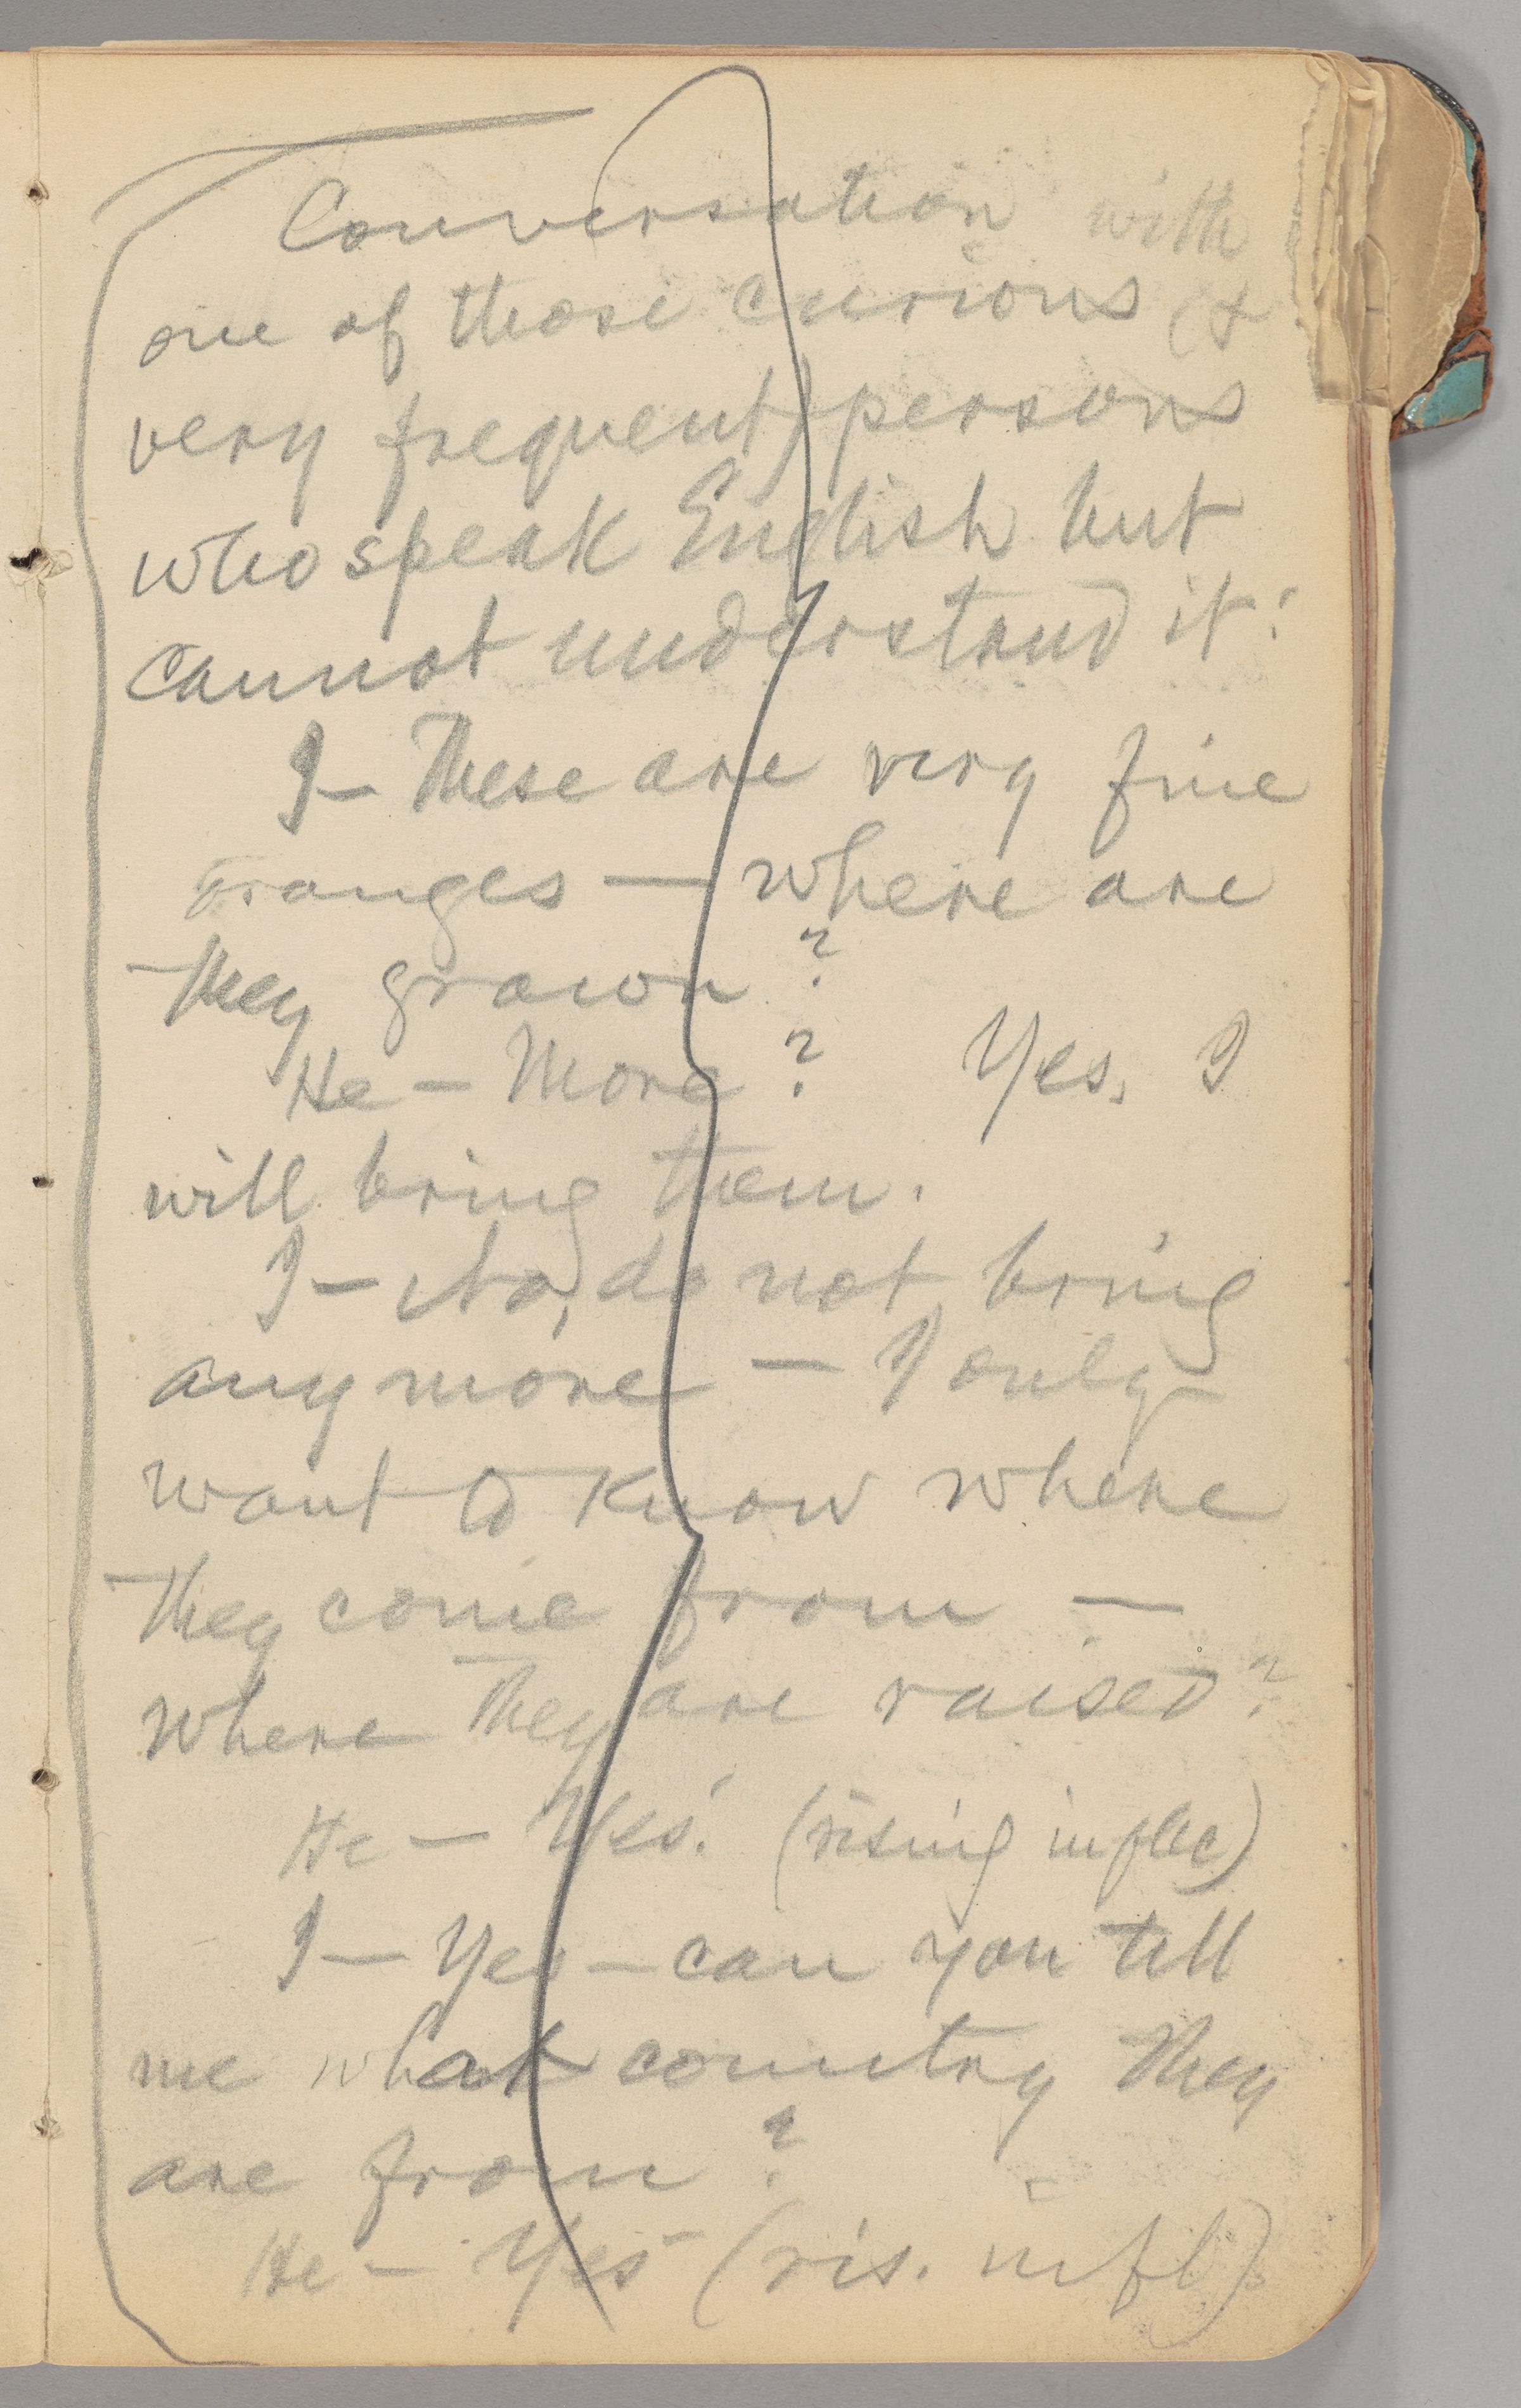 Conversation with
one of those curious (&
very frequent) persons
who speak English but
cannot understand it:
I — These are very fine
oranges — where are
they grown?
He — More? Yes, I
will bring them.
I — No, do not bring
any more — I only
want to know where
they come from —
where they are raised?
He — Yes. (rising inflec)
I — Yes — can you tell
me what country they
are from?
He — Yes (ris. infl)